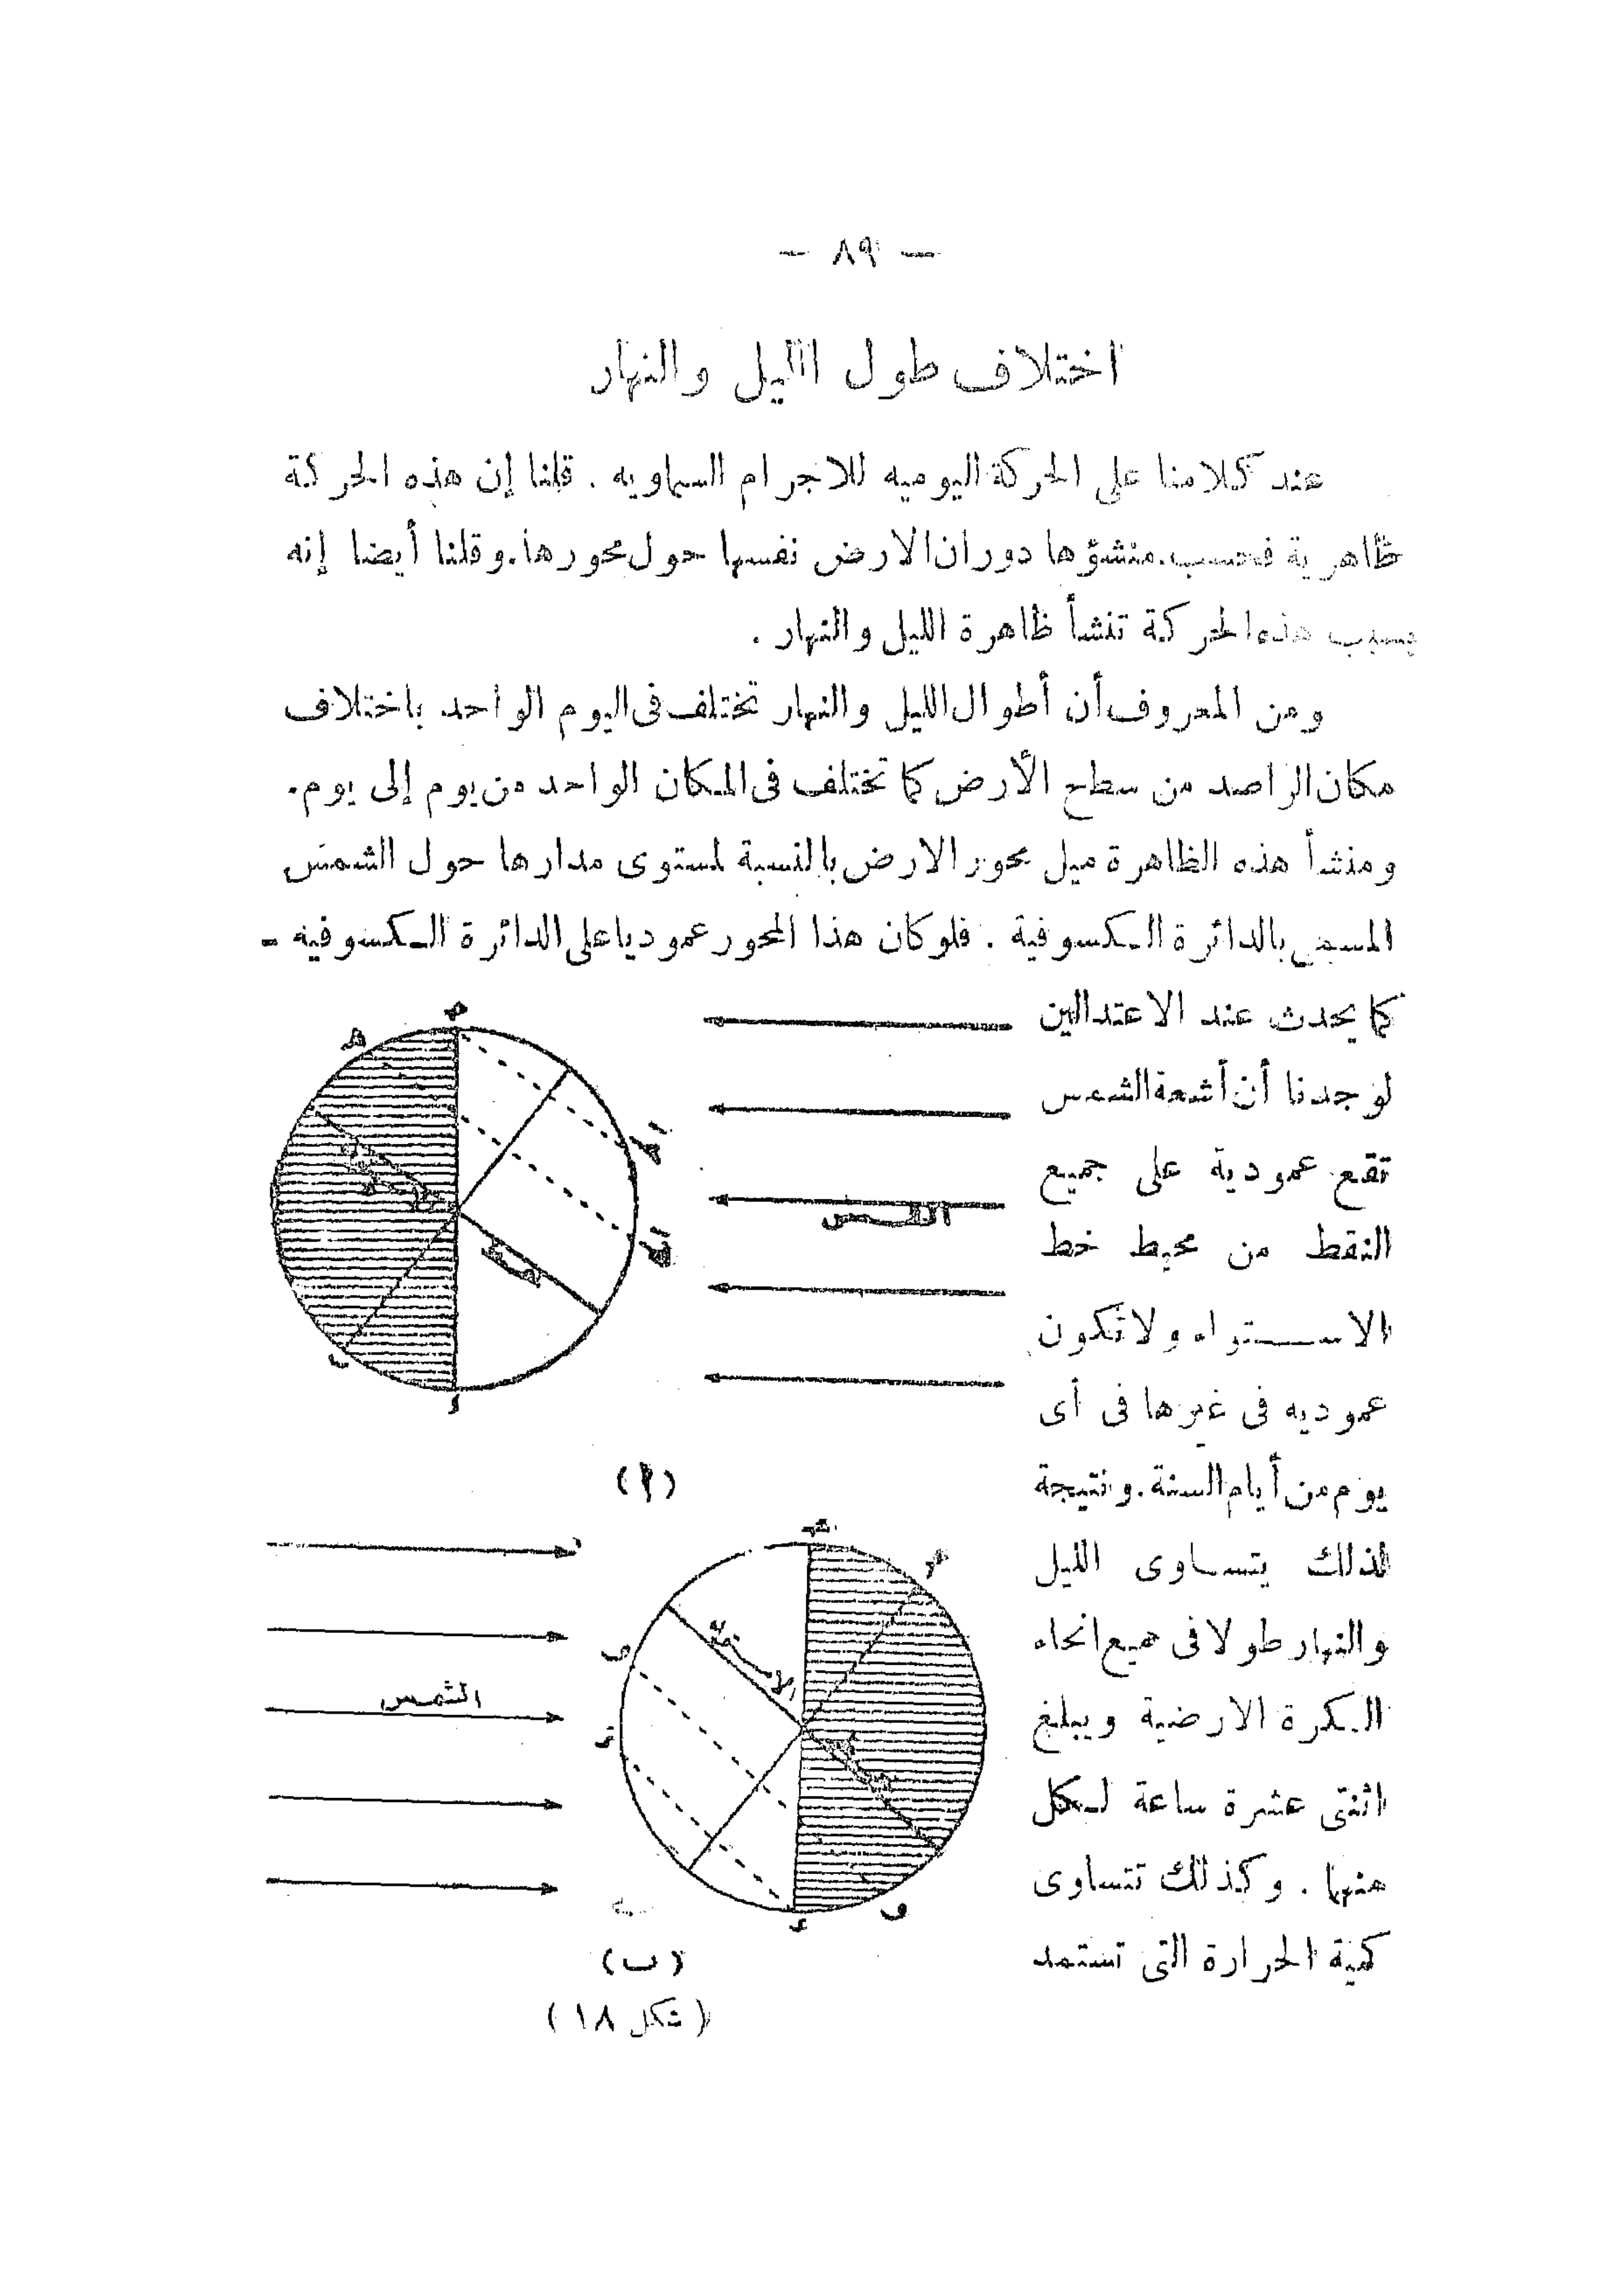 — ٨٩ —
اختلاف طول الليل والنهار
عند كلامنا على الحركة اليوميه للاجرام السماويه . قلنا إن هذه الحركة
ظاهرية فحسب.منشؤها دوران الارض نفسها حول محورها.وقلنا أيضا إنه
بسبب هذه الحركة تنشأ ظاهرة الليل والنهار .
ومن المعروف أن أطوال الليل والنهار تختلف فى اليوم الواحد باختلاف
مكان الراصد من سطح الأرض كما تختلف فى المكان الواحد من يوم إلى يوم.
ومنشأ هذه الظاهرة ميل محور الارض بالنسبة لمستوى مدارها حول الشمس
المسمى بالدائرة الكسوفية . فلو كان هذا المحور عموديا على الدائرة الكسوفيه -
كما يحدث عند الاعتدالين
لوجدنا أن أشعة الشمس
تقع عمودية على جميع
النقط من محيط خط
الاستواء ولا تكون
عموديه فى غيرها فى أى
يوم من أيام السنة.ونتيجة
لذلك يتساوى الليل
والنهار طولا فى جميع انحاء
الكرة الارضية ويبلغ
اثنتى عشرة ساعة لكل
منهما . وكذلك تتساوى
كمية الحرارة التى تستمد
هـ
الشمس
ب
د
(ا)
الشمس
و
د
(ب)
(شكل ١٨)